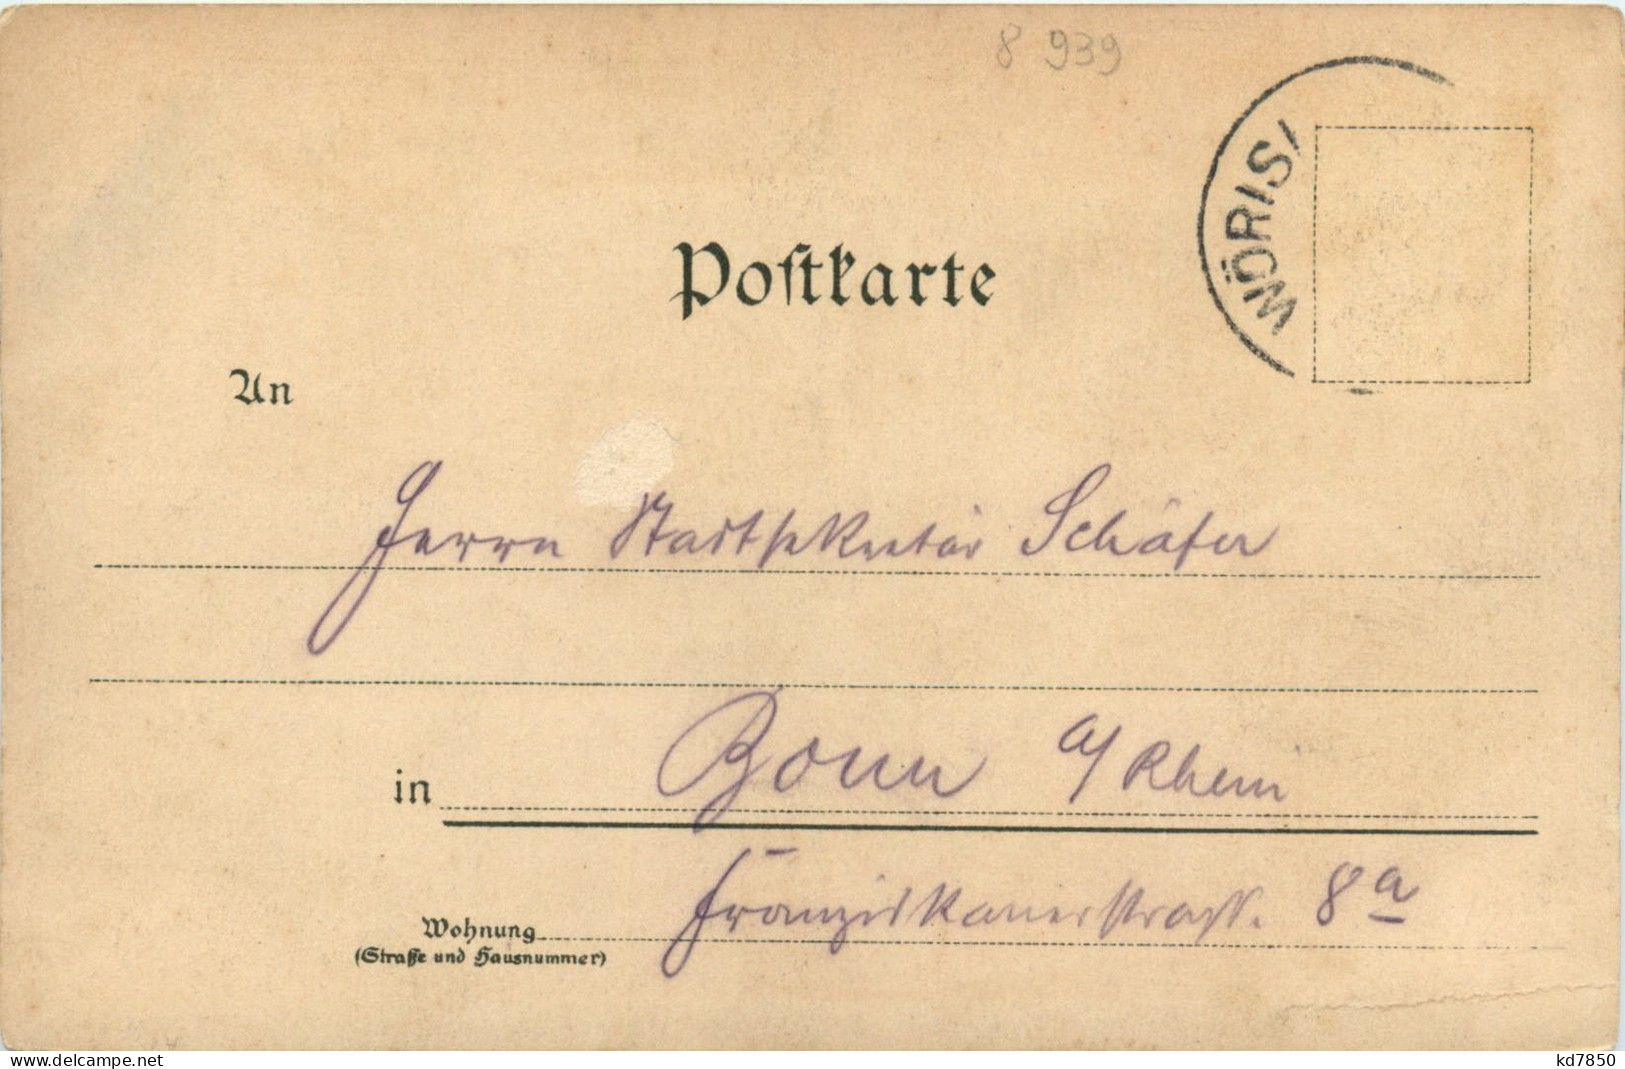 8 939
WÖRIS
Postkarte
An
Herrn Stadtsekretär Schäfer
in Bonn a/Rhein
Wohnung Franziskanerstrass. 8a
(Straße und Hausnummer)
delcampe.net
kd7850